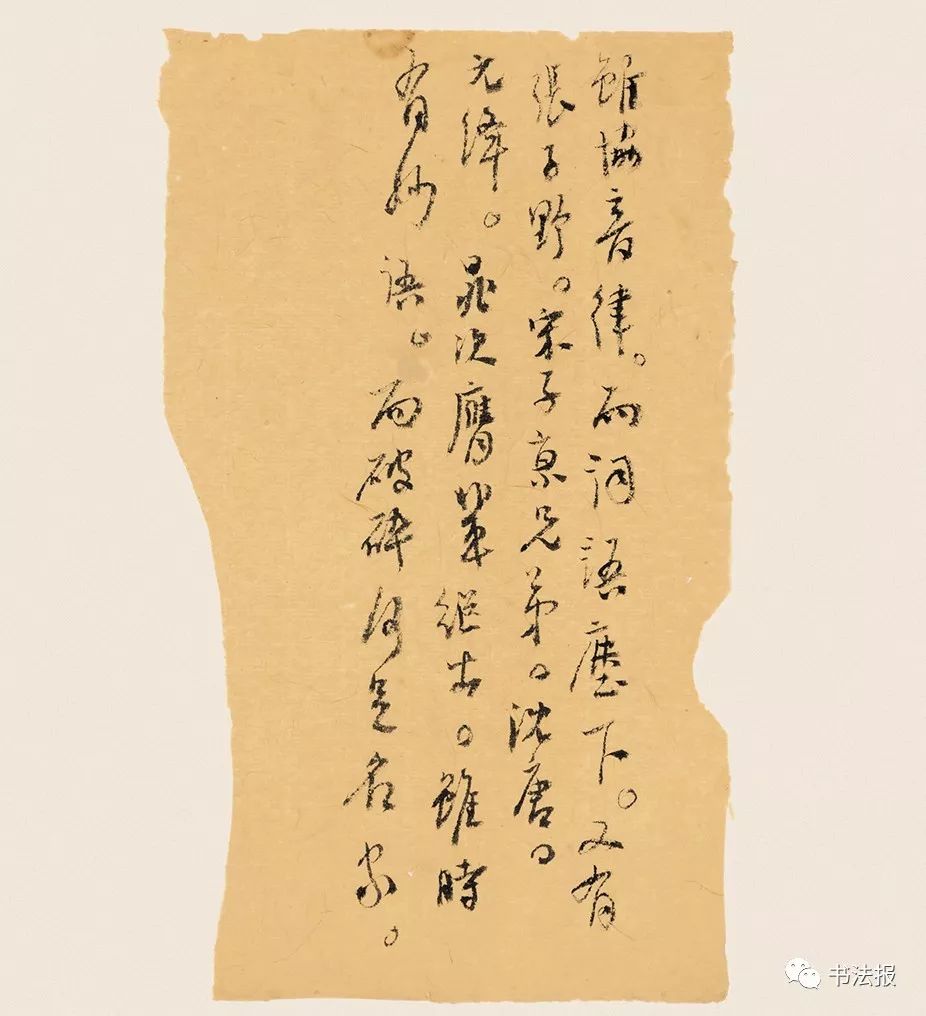 雖協音律。而詞語塵下。又有
張子野。宋子京兄弟。沈唐。
元絳。晁次膺輩繼出。雖時
有妙語。而破碎何足名家。
书法报